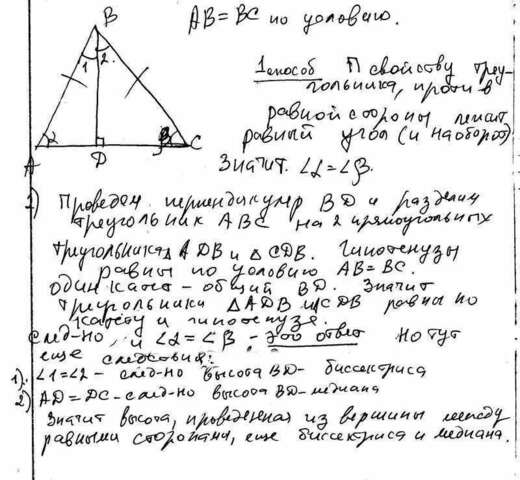 B
AB = BC по условию.
1 2.
1 способ По свойству треу-
гольника, против
равной стороны лежит
равный угол (и наоборот)
Значит ∠α = ∠β.
α β
A D C
2) Проведем перпендикуляр BD и разделим
треугольник ABC на 2 прямоугольных
треугольника △ADB и △CDB. Гипотенузы
равны по условию AB = BC.
один катет - общий BD. Значит
треугольники △ADB и CDB равны по
катету и гипотенузе.
след-но, и ∠α = ∠β - это ответ Но тут
еще следствия:
1). ∠1 = ∠2 - след-но высота BD - биссектриса
2) AD = DC - след-но высота BD - медиана
Значит высота, проведенная из вершины между
равными сторонами, еще биссектриса и медиана.